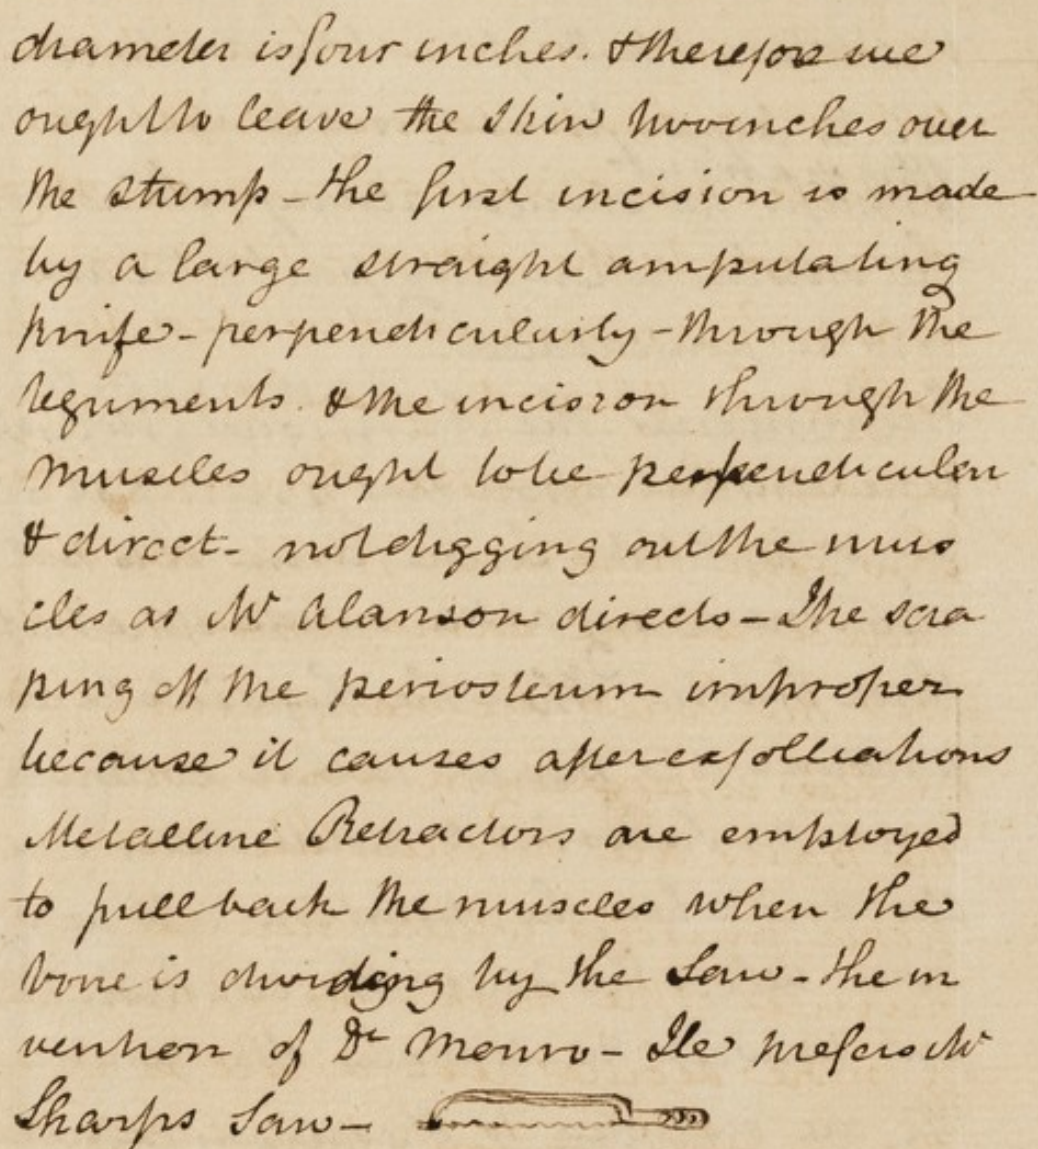 diameter is four inches. & therefore we
ought to leave the skin two inches over
the stump - the first incision is made
by a large straight amputating
knife - perpendicularly - through the
teguments. & the incision through the
muscles ought to be perpendicular
& direct - not digging out the mus
cles as Mr Alanson directs - The scra
ping off the periosteum improper
because it causes after exfolliations
Metalline Retractors are employed
to pull back the muscles when the
bone is dividing by the Saw - the in
vention of Dr Monro - He prefers Mr
Sharps Saw -